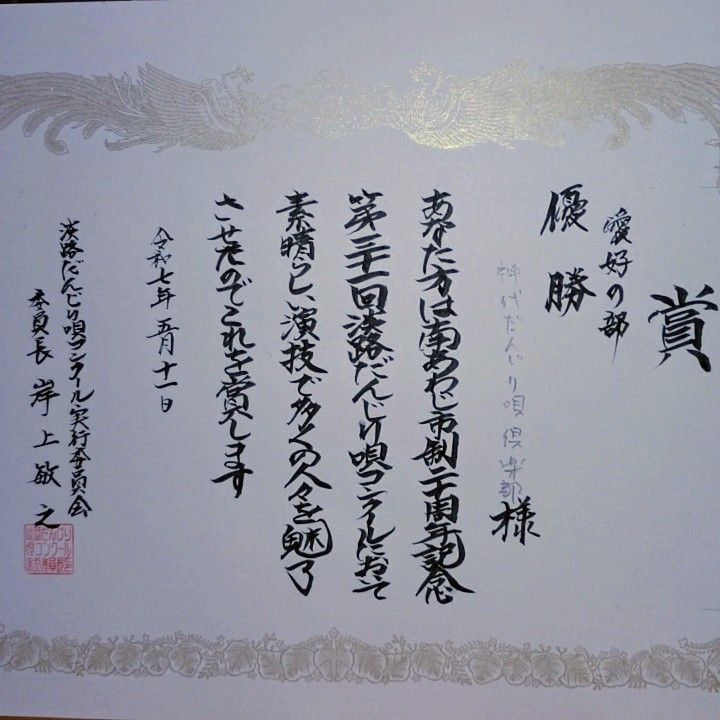 賞
愛好の部
優勝
神代だんじり唄倶楽部 様
あなた方は南あわじ市制二十周年記念
第三十一回淡路だんじり唄コンクールにおいて
素晴らしい演技で多くの人々を魅了
させたのでこれを賞します
令和七年五月十一日
淡路だんじり唄コンクール実行委員会
委員長 岸上敏之